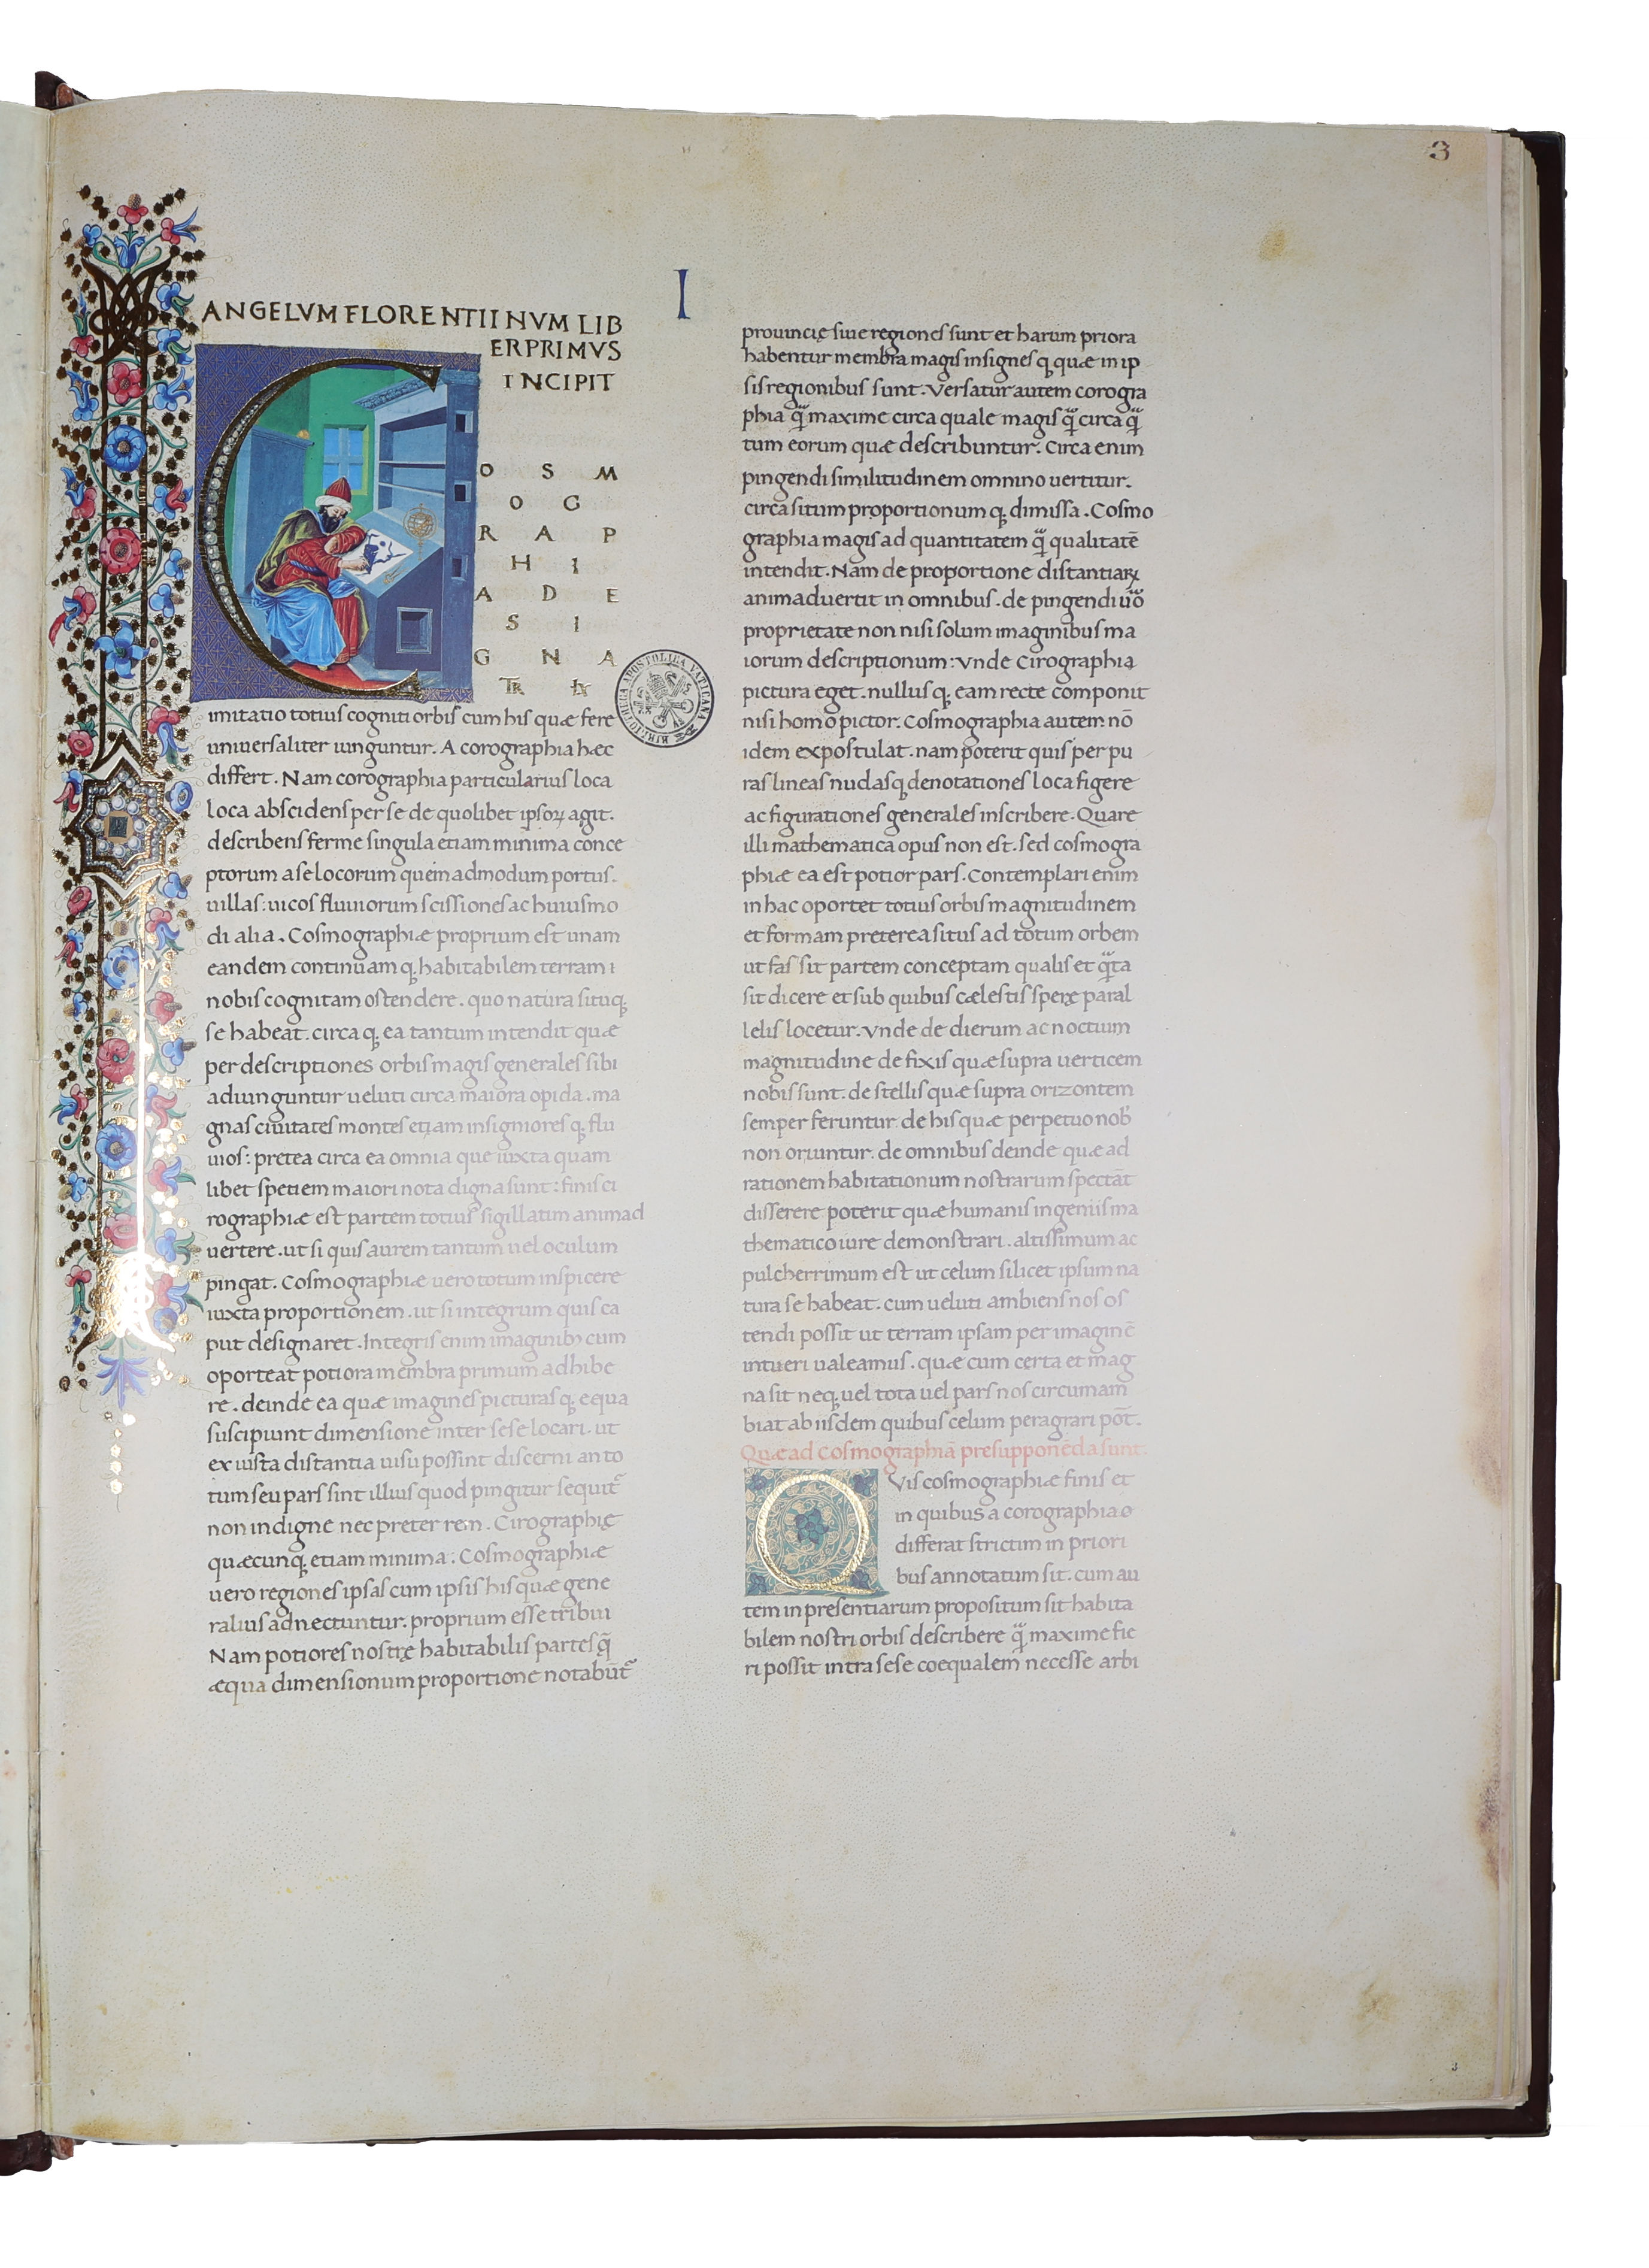 3
I
ANGELVM FLORENTIINVM LIB
ERPRIMVS
INCIPIT
C
O S M
O G
R A P
H I
A D E
S I
G N A
TR IX
BIBLIOTHECA APOSTOLICA VATICANA
imitatio totius cogniti orbis cum his quæ fere
uniuersaliter iunguntur. A corographia hæc
differt. Nam corographia particularius loca
loca abscidens per se de quolibet ipsoꝝ agit.
describens ferme singula etiam minima conce
ptorum a se locorum quemadmodum portus.
uillas: uicos fluuiorum scissiones ac huiusmo
di alia. Cosmographiæ proprium est unam
eandem continuam qꝫ habitabilem terram i
nobis cognitam ostendere. quo natura situqꝫ
se habeat. circa qꝫ ea tantum intendit quæ
per descriptiones orbis magis generales sibi
adiunguntur ueluti circa maiora opida. ma
gnas ciuitates montes etiam insigniores qꝫ flu
uios: pretea circa ea omnia que iuxta quam
libet spetiem maiori nota digna sunt: finis ci
rographiæ est partem totius sigillatim animad
uertere. ut si quis aurem tantum uel oculum
pingat. Cosmographiæ uero totum inspicere
iuxta proportionem. ut si integrum quis ca
put designaret. Integris enim imaginibꝫ cum
oporteat potiora membra primum adhibe
re. deinde ea quæ imagines picturas qꝫ equa
suscipiunt dimensione inter sese locari. ut
ex iusta distantia uisu possint discerni an to
tum seu pars sint illius quod pingitur sequit̃
non indigne nec preter rem. Cirographię
quæcunqꝫ etiam minima: Cosmographiæ
uero regiones ipsas cum ipsis his quæ gene
ralius adnectuntur. proprium esse tribui
Nam potiores nostrę habitabilis partes q̃
æqua dimensionum proportione notabūt̃
prouincię siue regiones sunt et harum priora
habentur membra magis insignes qꝫ quæ in ip
sis regionibus sunt. Versatur autem corogra
phia q̃ maxime circa quale magis q̃ circa q̃
tum eorum quæ describuntur. Circa enim
pingendi similitudinem omnino uertitur.
circa situm proportionum qꝫ dimissa. Cosmo
graphia magis ad quantitatem q̃ qualitatē
intendit. Nam de proportione distantiaꝝ
animaduertit in omnibus. de pingendi ůo
proprietate non nisi solum imaginibus ma
iorum descriptionum: Vnde Cirographia
pictura eget. nullus qꝫ eam recte componit
nisi homo pictor. Cosmographia autem nō
idem expostulat. nam poterit quis per pu
ras lineas nudasqꝫ denotationes loca figere
ac figurationes generales inscribere. Quare
illi mathematica opus non est. sed cosmogra
phiæ ea est potior pars. Contemplari enim
in hac oportet totius orbis magnitudinem
et formam preterea situs ad totum orbem
ut fas sit partem conceptam qualis et q̃ta
sit dicere et sub quibus cælestis sperę paral
lelis locetur. Vnde de dierum ac noctium
magnitudine de fixis quæ supra uerticem
nobis sunt. de stellis quæ supra orizontem
semper feruntur. de his quæ perpetuo nob̃
non oriuntur. de omnibus deinde quæ ad
rationem habitationum nostrarum spectāt
disserere poterit quæ humanis ingeniis ma
thematico iure demonstrari. altissimum ac
pulcherrimum est ut celum silicet ipsum na
tura se habeat. cum ueluti ambiens nos os
tendi possit ut terram ipsam per imaginē
intueri ualeamus. quæ cum certa et mag
na sit neqꝫ uel tota uel pars nos circumam
biat ab iisdem quibus celum peragrari pōt.
Quæ ad Cosmographiā presupponēda sunt.
QVis cosmographiæ finis et
in quibus a corographia o
differat strictim in priori
bus annotatum sit. cum au
tem in presentiarum propositum sit habita
bilem nostri orbis describere q̃ maxime fie
ri possit intra sese coequalem necesse arbi
3